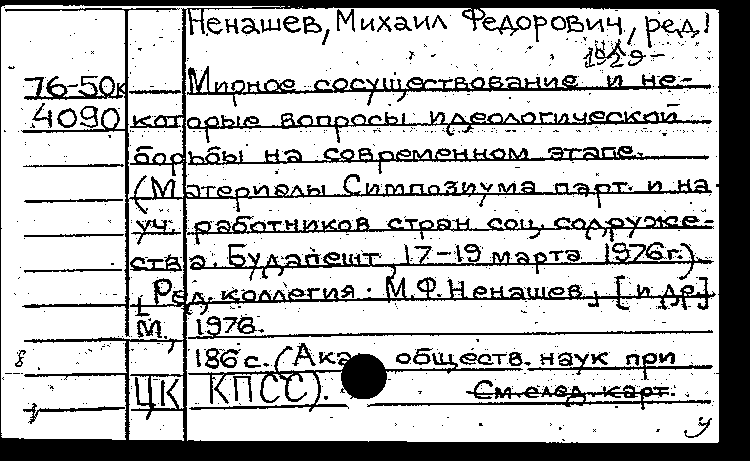 Ненашев, Михаил Федорович, ред.
1929-
76-50к Мирное сосуществование и не-
4090 которые вопросы идеологической
борьбы на современном этапе.
(Материалы Симпозиума парт. и на-
уч. работников стран соц. содруже-
ства. Будапешт, 17-19 марта 1976г.)
[Ред. коллегия: М.Ф. Ненашев] [и др.]
М, 1976.
8 186 с. (Ака общ­еств. наук при
ЦК КПСС). См. след. карт.
у